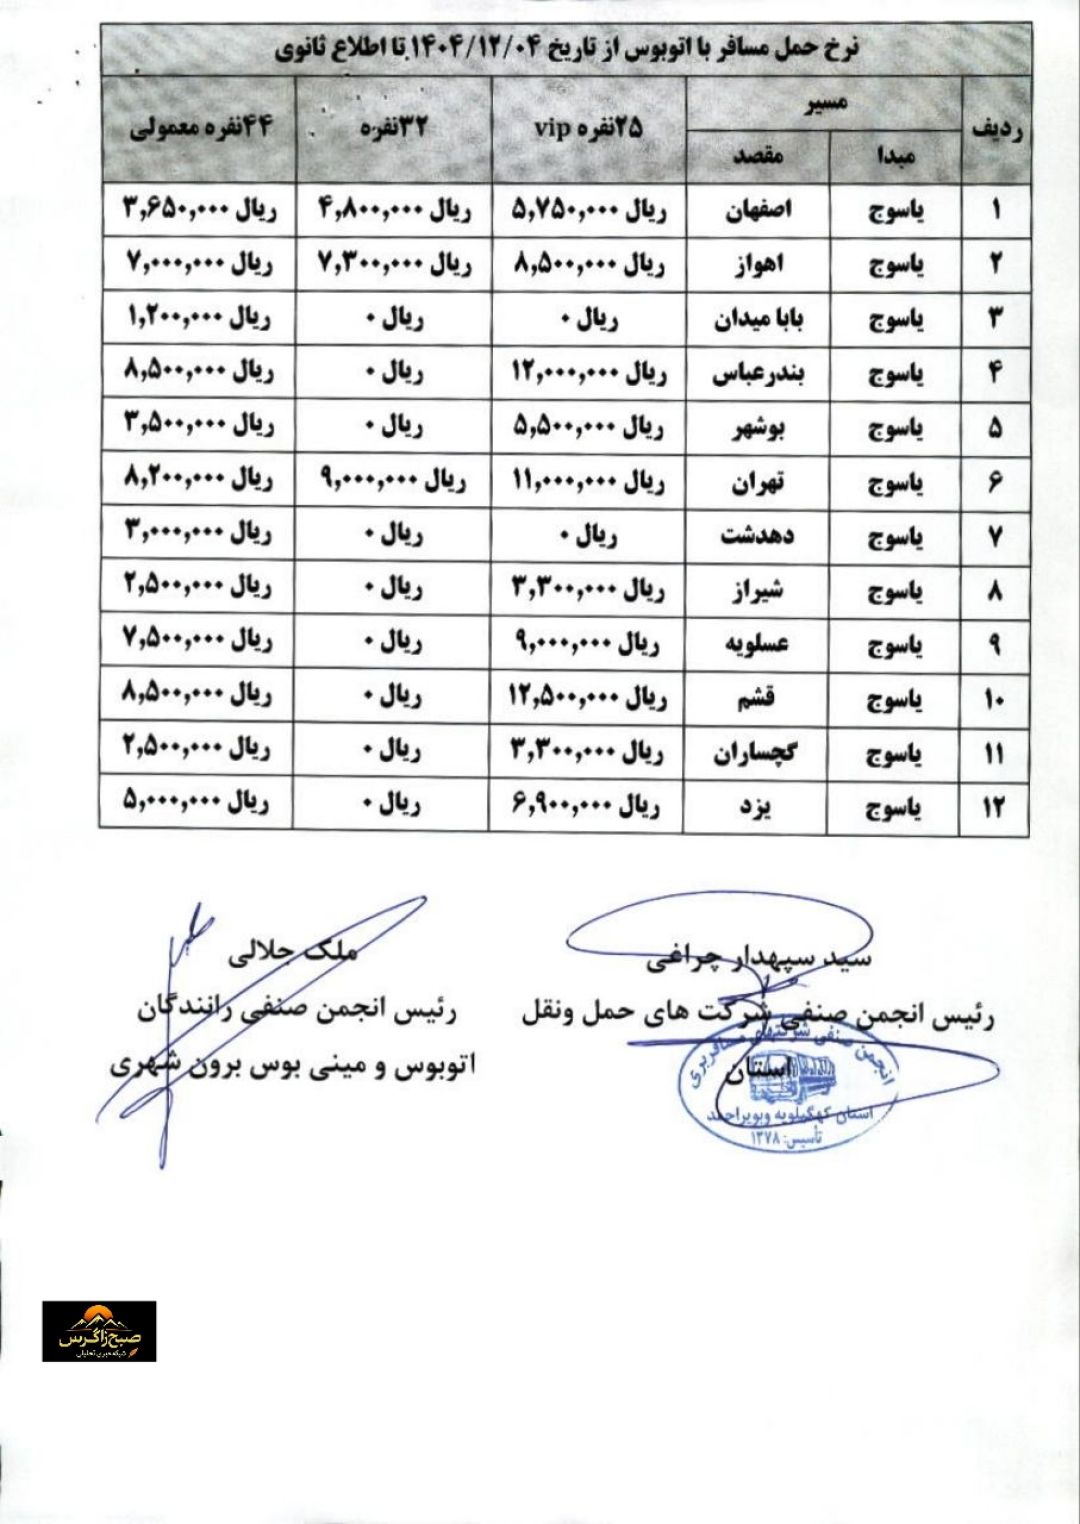 نرخ حمل مسافر با اتوبوس از تاریخ ۱۴۰۴/۱۲/۰۴ تا اطلاع ثانوی
ردیف مسیر ۲۵نفره vip ۳۲نفره ۴۴نفره معمولی
مبدا مقصد
۱ یاسوج اصفهان ریال ۵,۷۵۰,۰۰۰ ریال ۴,۸۰۰,۰۰۰ ریال ۳,۶۵۰,۰۰۰
۲ یاسوج اهواز ریال ۸,۵۰۰,۰۰۰ ریال ۷,۳۰۰,۰۰۰ ریال ۷,۰۰۰,۰۰۰
۳ یاسوج بابا میدان ریال ۰ ریال ۰ ریال ۱,۲۰۰,۰۰۰
۴ یاسوج بندرعباس ریال ۱۲,۰۰۰,۰۰۰ ریال ۰ ریال ۸,۵۰۰,۰۰۰
۵ یاسوج بوشهر ریال ۵,۵۰۰,۰۰۰ ریال ۰ ریال ۳,۵۰۰,۰۰۰
۶ یاسوج تهران ریال ۱۱,۰۰۰,۰۰۰ ریال ۹,۰۰۰,۰۰۰ ریال ۸,۲۰۰,۰۰۰
۷ یاسوج دهدشت ریال ۰ ریال ۰ ریال ۳,۰۰۰,۰۰۰
۸ یاسوج شیراز ریال ۳,۳۰۰,۰۰۰ ریال ۰ ریال ۲,۵۰۰,۰۰۰
۹ یاسوج عسلویه ریال ۹,۰۰۰,۰۰۰ ریال ۰ ریال ۷,۵۰۰,۰۰۰
۱۰ یاسوج قشم ریال ۱۲,۵۰۰,۰۰۰ ریال ۰ ریال ۸,۵۰۰,۰۰۰
۱۱ یاسوج گچساران ریال ۳,۳۰۰,۰۰۰ ریال ۰ ریال ۲,۵۰۰,۰۰۰
۱۲ یاسوج یزد ریال ۶,۹۰۰,۰۰۰ ریال ۰ ریال ۵,۰۰۰,۰۰۰
سید سپهدار چراغی
رئیس انجمن صنفی شرکت های حمل ونقل
استان
انجمن صنفی شرکتهای مسافربری
استان کهگیلویه وبویراحمد
تأسیس: ۱۳۷۸
ملک جلالی
رئیس انجمن صنفی رانندگان
اتوبوس و مینی بوس برون شهری
صبح زاگرس
شبکه خبری تحلیلی